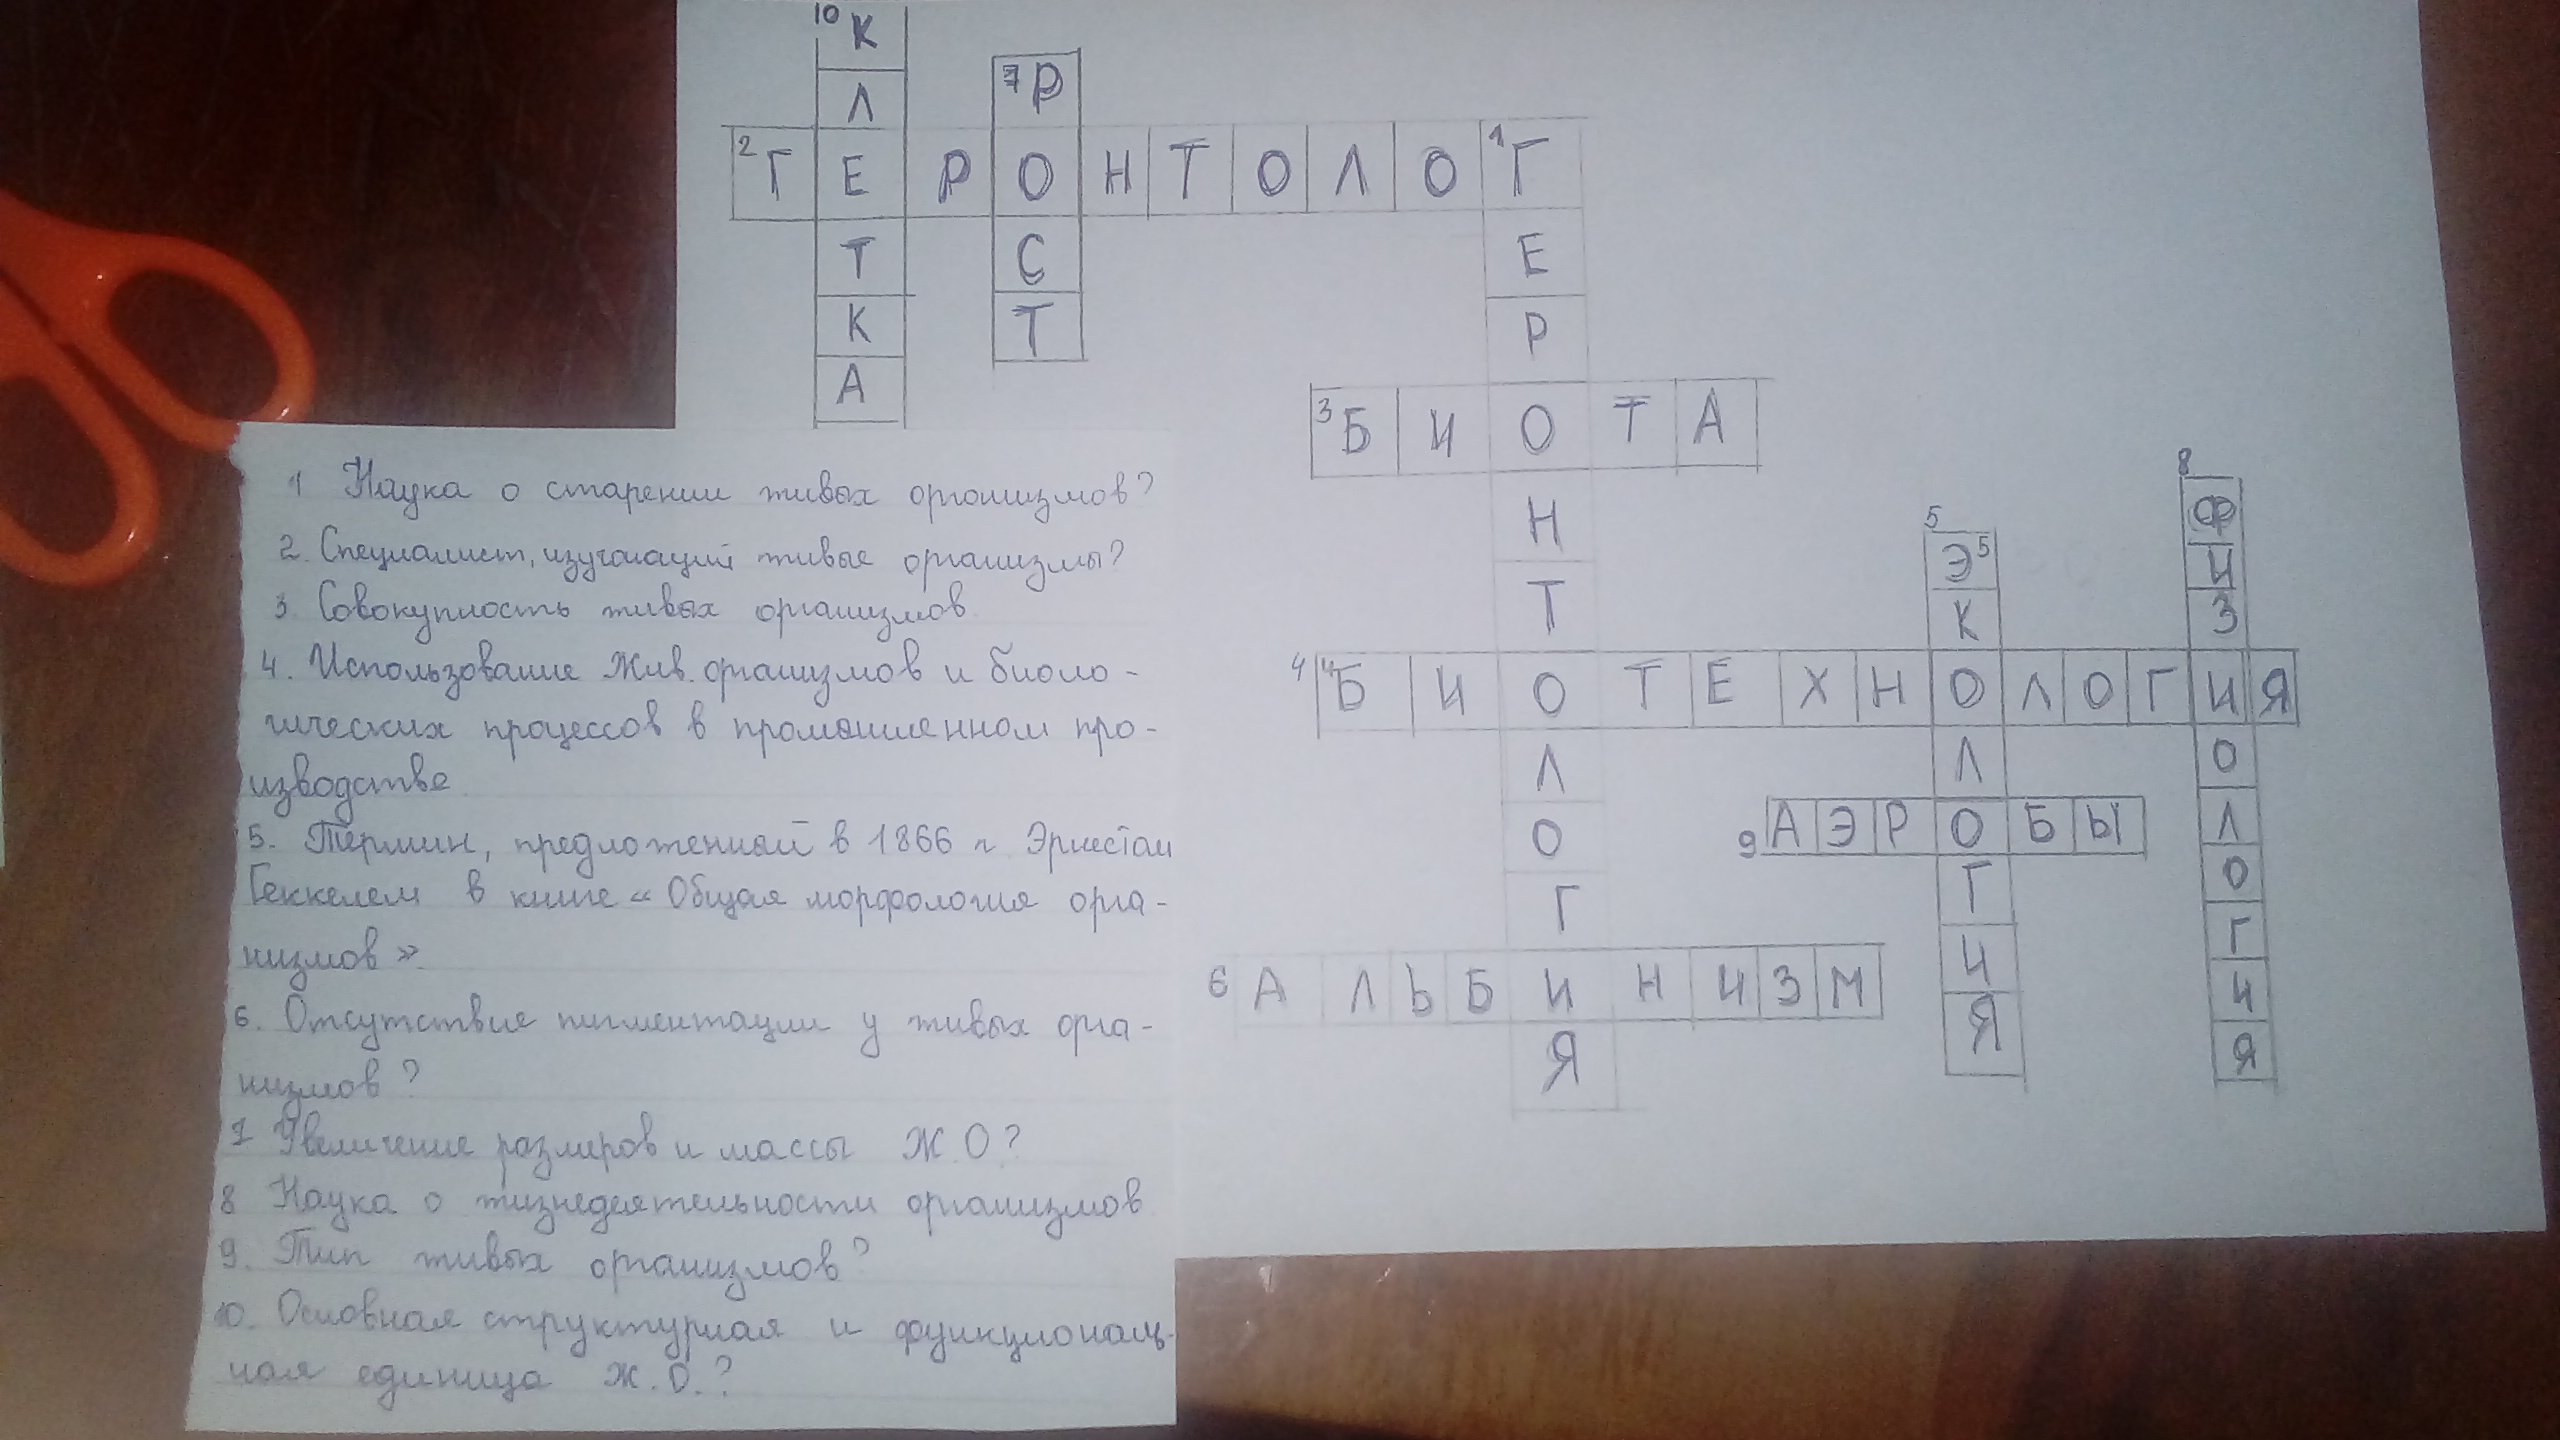 10 К
Л
7 Р
2 Г Е Р О Н Т О Л О 1 Г
Т С Е
К Т Р
А
3 Б И О Т А
Н
Т
8
Ф
И
З
5
Э 5
К
4 4 Б И О Т Е Х Н О Л О Г И Я
Л Л О
О
9 А Э Р О Б Ы Л
Г Г О
6 А Л Ь Б И Н И З М
И Г
Я Я И
Я
1 Наука о старении живых организмов?
2. Специалист, изучающий живые организмы?
3. Совокупность живых организмов
4. Использование Жив. организмов и биоло-
гических процессов в промышленном про-
изводстве.
5. Термин, предложенный в 1866 г. Эрнестом
Геккелем в книге «Общая морфология орга-
низмов».
6. Отсутствие пигментации у живых орга-
низмов?
7 Увеличение размеров и массы Ж.О?
8 Наука о жизнедеятельности организмов
9. Тип живых организмов?
10. Основная структурная и функциональ-
ная единица Ж.О.?